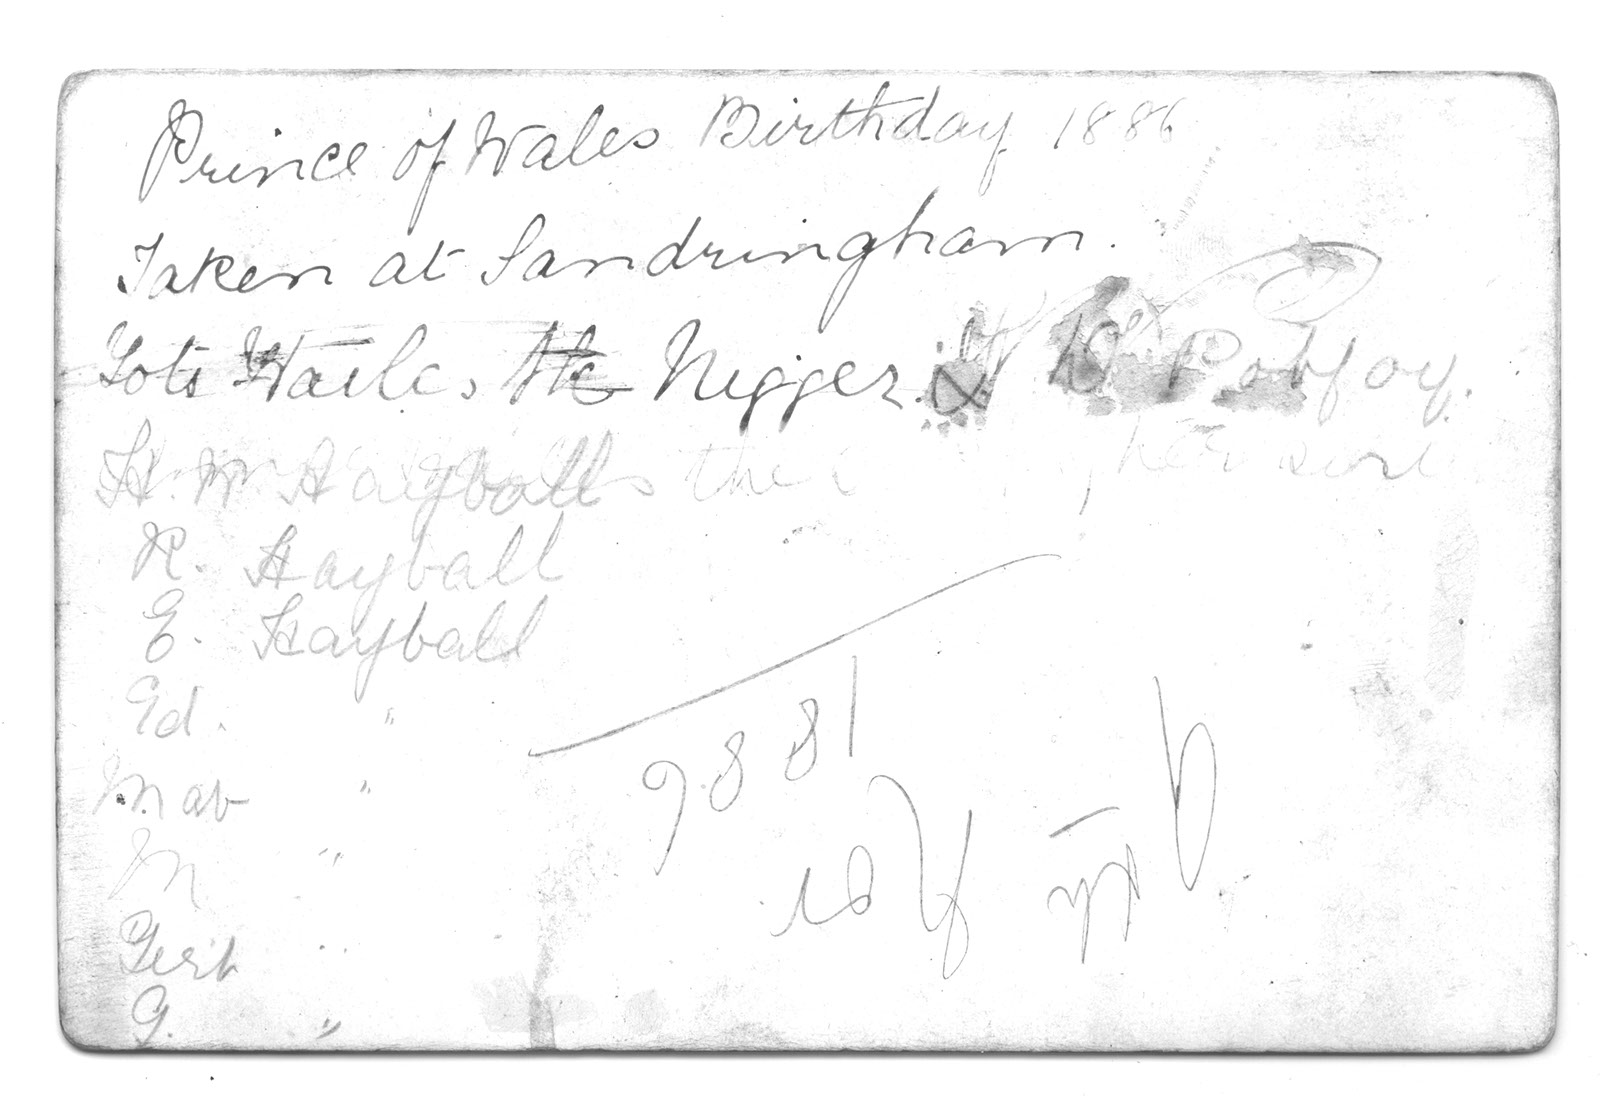 Prince of Wales Birthday 1886
Taken at Sandringham.
Tots Hailes, the Nigger.
H. W. Hayballs the her
R. Hayball
E. Hayball
Ed. "
Mab "
M "
Gert "
G. "
1886
9th Nov